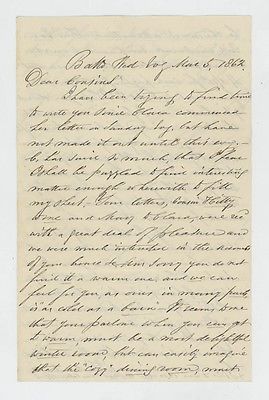 Balto. Wed Evg Mar 5, 1862
Dear Cousins
I have been trying to find time
to write you since Clara commenced
her letter on Sunday Evg, but have
not made it out until this evg.
C. has said so much, that I fear
I shall be puzzled to find interesting
matter enough wherewith to fill
my sheet. Your letters, Cousin Hetty
to me and Mary to Clara, were rec'd
with a great deal of pleasure and
we were much interested in the
of your house &c. Am sorry you do not
find it a warm one, and we can
feel for you, as ours in many parts
is "as cold as a barn". It seems to me
that your parlour when you can get
it warm, must be a most delightful
winter room, but can easily imagine
that the "cozy" dining room, must